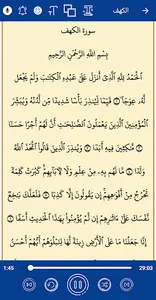 الكهف
سورة الكهف
بِسْمِ اللَّهِ الرَّحْمَٰنِ الرَّحِيمِ
الْحَمْدُ لِلَّهِ الَّذِي أَنزَلَ عَلَىٰ عَبْدِهِ الْكِتَابَ وَلَمْ يَجْعَل
لَّهُ عِوَجًا ۜ قَيِّمًا لِّيُنذِرَ بَأْسًا شَدِيدًا مِّن لَّدُنْهُ وَيُبَشِّرَ
الْمُؤْمِنِينَ الَّذِينَ يَعْمَلُونَ الصَّالِحَاتِ أَنَّ لَهُمْ أَجْرًا حَسَنًا
مَّاكِثِينَ فِيهِ أَبَدًا وَيُنذِرَ الَّذِينَ قَالُوا اتَّخَذَ اللَّهُ
وَلَدًا مَّا لَهُم بِهِ مِنْ عِلْمٍ وَلَا لِآبَائِهِمْ كَبُرَتْ كَلِمَةً
تَخْرُجُ مِنْ أَفْوَاهِهِمْ إِن يَقُولُونَ إِلَّا كَذِبًا فَلَعَلَّكَ بَاخِعٌ
نَّفْسَكَ عَلَىٰ آثَارِهِمْ إِن لَّمْ يُؤْمِنُوا بِهَٰذَا الْحَدِيثِ أَسَفًا
إِنَّا جَعَلْنَا مَا عَلَى الْأَرْضِ زِينَةً لَّهَا لِنَبْلُوَهُمْ أَيُّهُمْ أَحْسَنُ
1:45 29:03